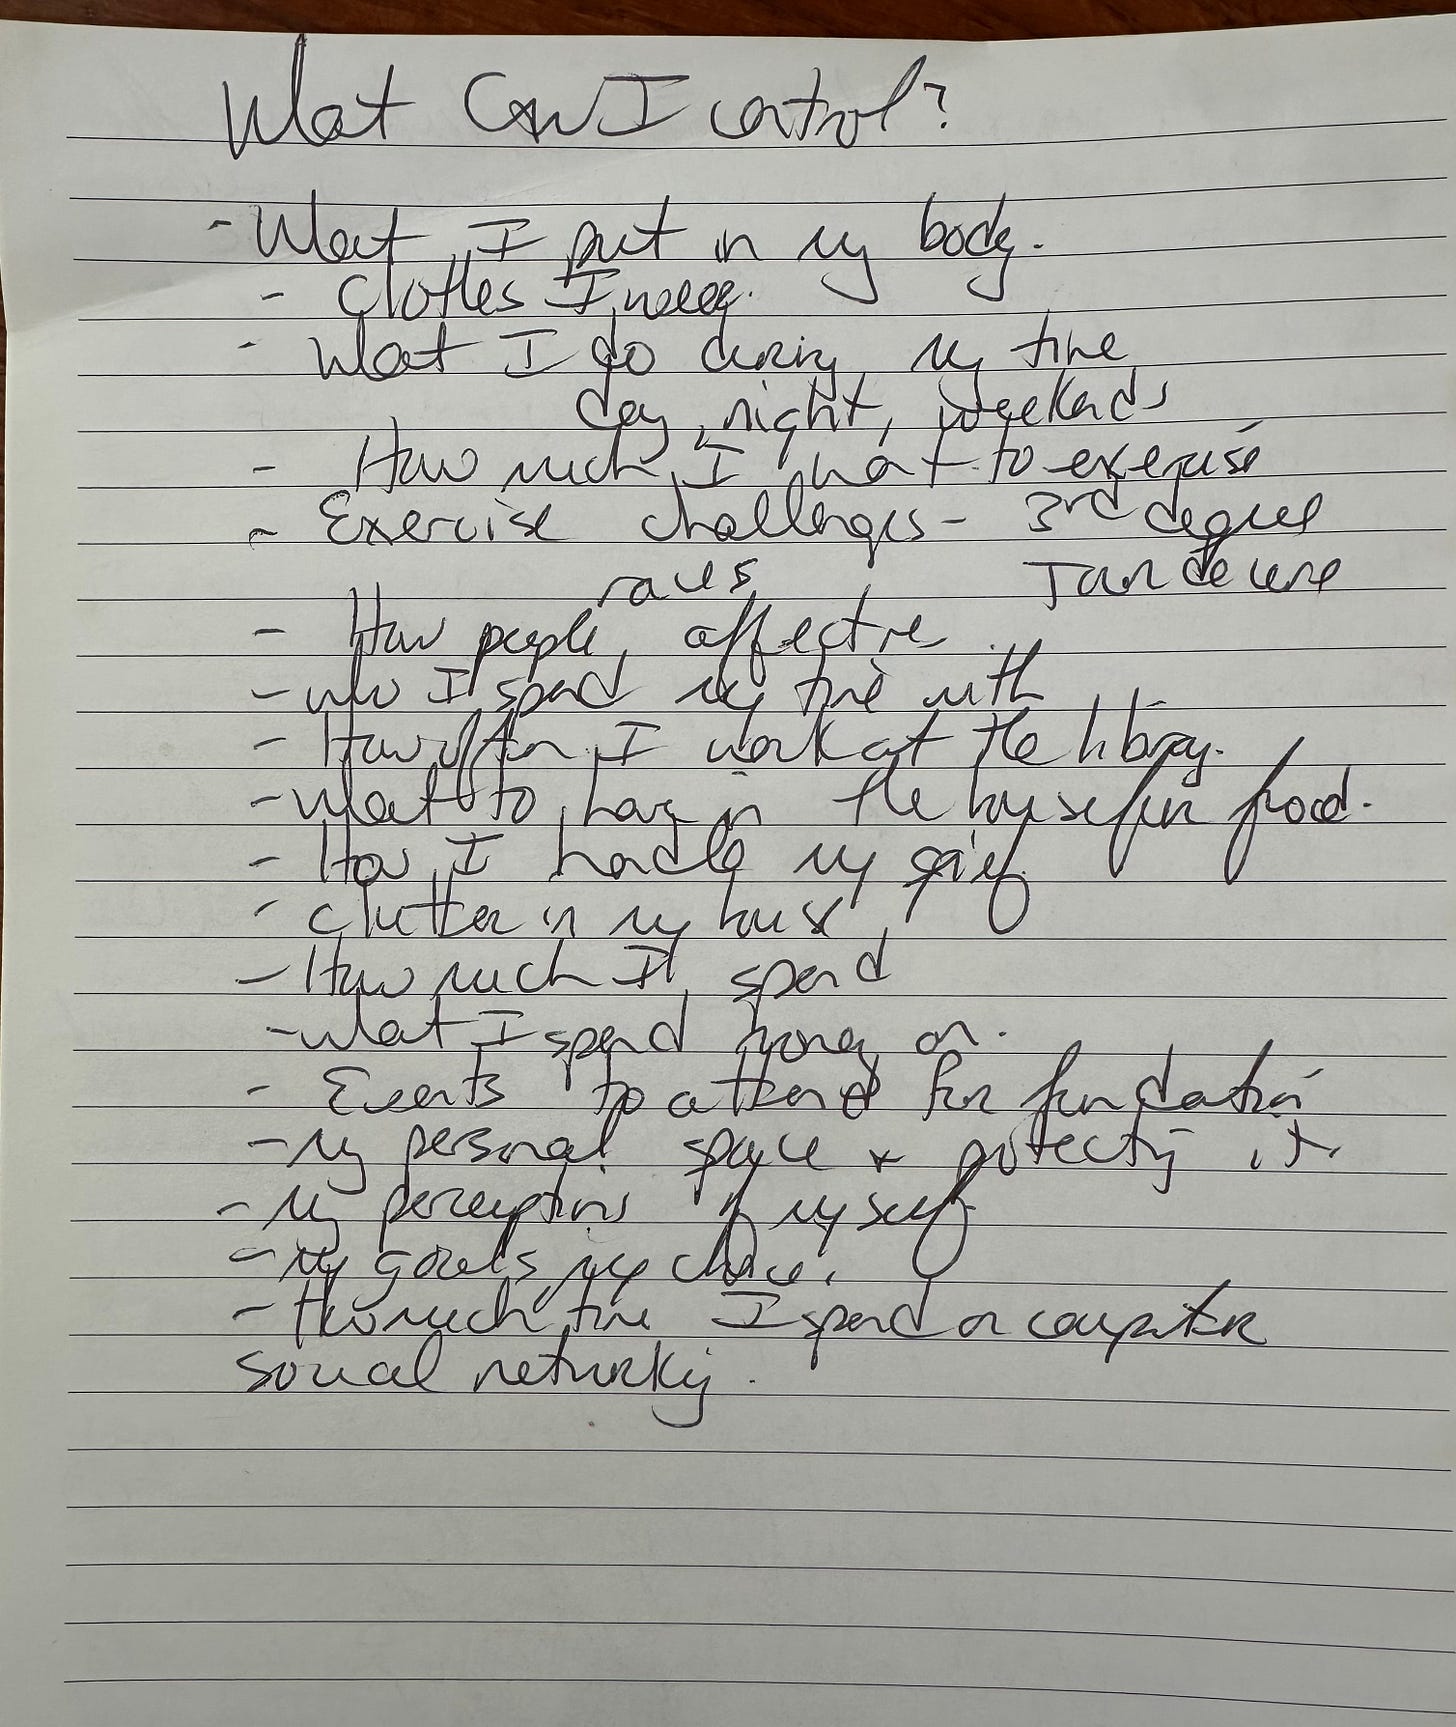 What Can I control?
- What I put in my body.
- Clothes I wear.
- What I do during my time
day, night, weekends
- How much I want to exercise
- Exercise challenges - 3rd degree
races
- How people affect me
- who I spend my time with
- How often I work at the library.
- What to have in the house for food.
- How I handle my grief
- clutter in my house
- How much I spend
- What I spend money on.
- Events to attend for foundation
- My personal space + protecting it.
- My perceptions of myself
- My goals my choice.
- How much time I spend on computer
social networking.